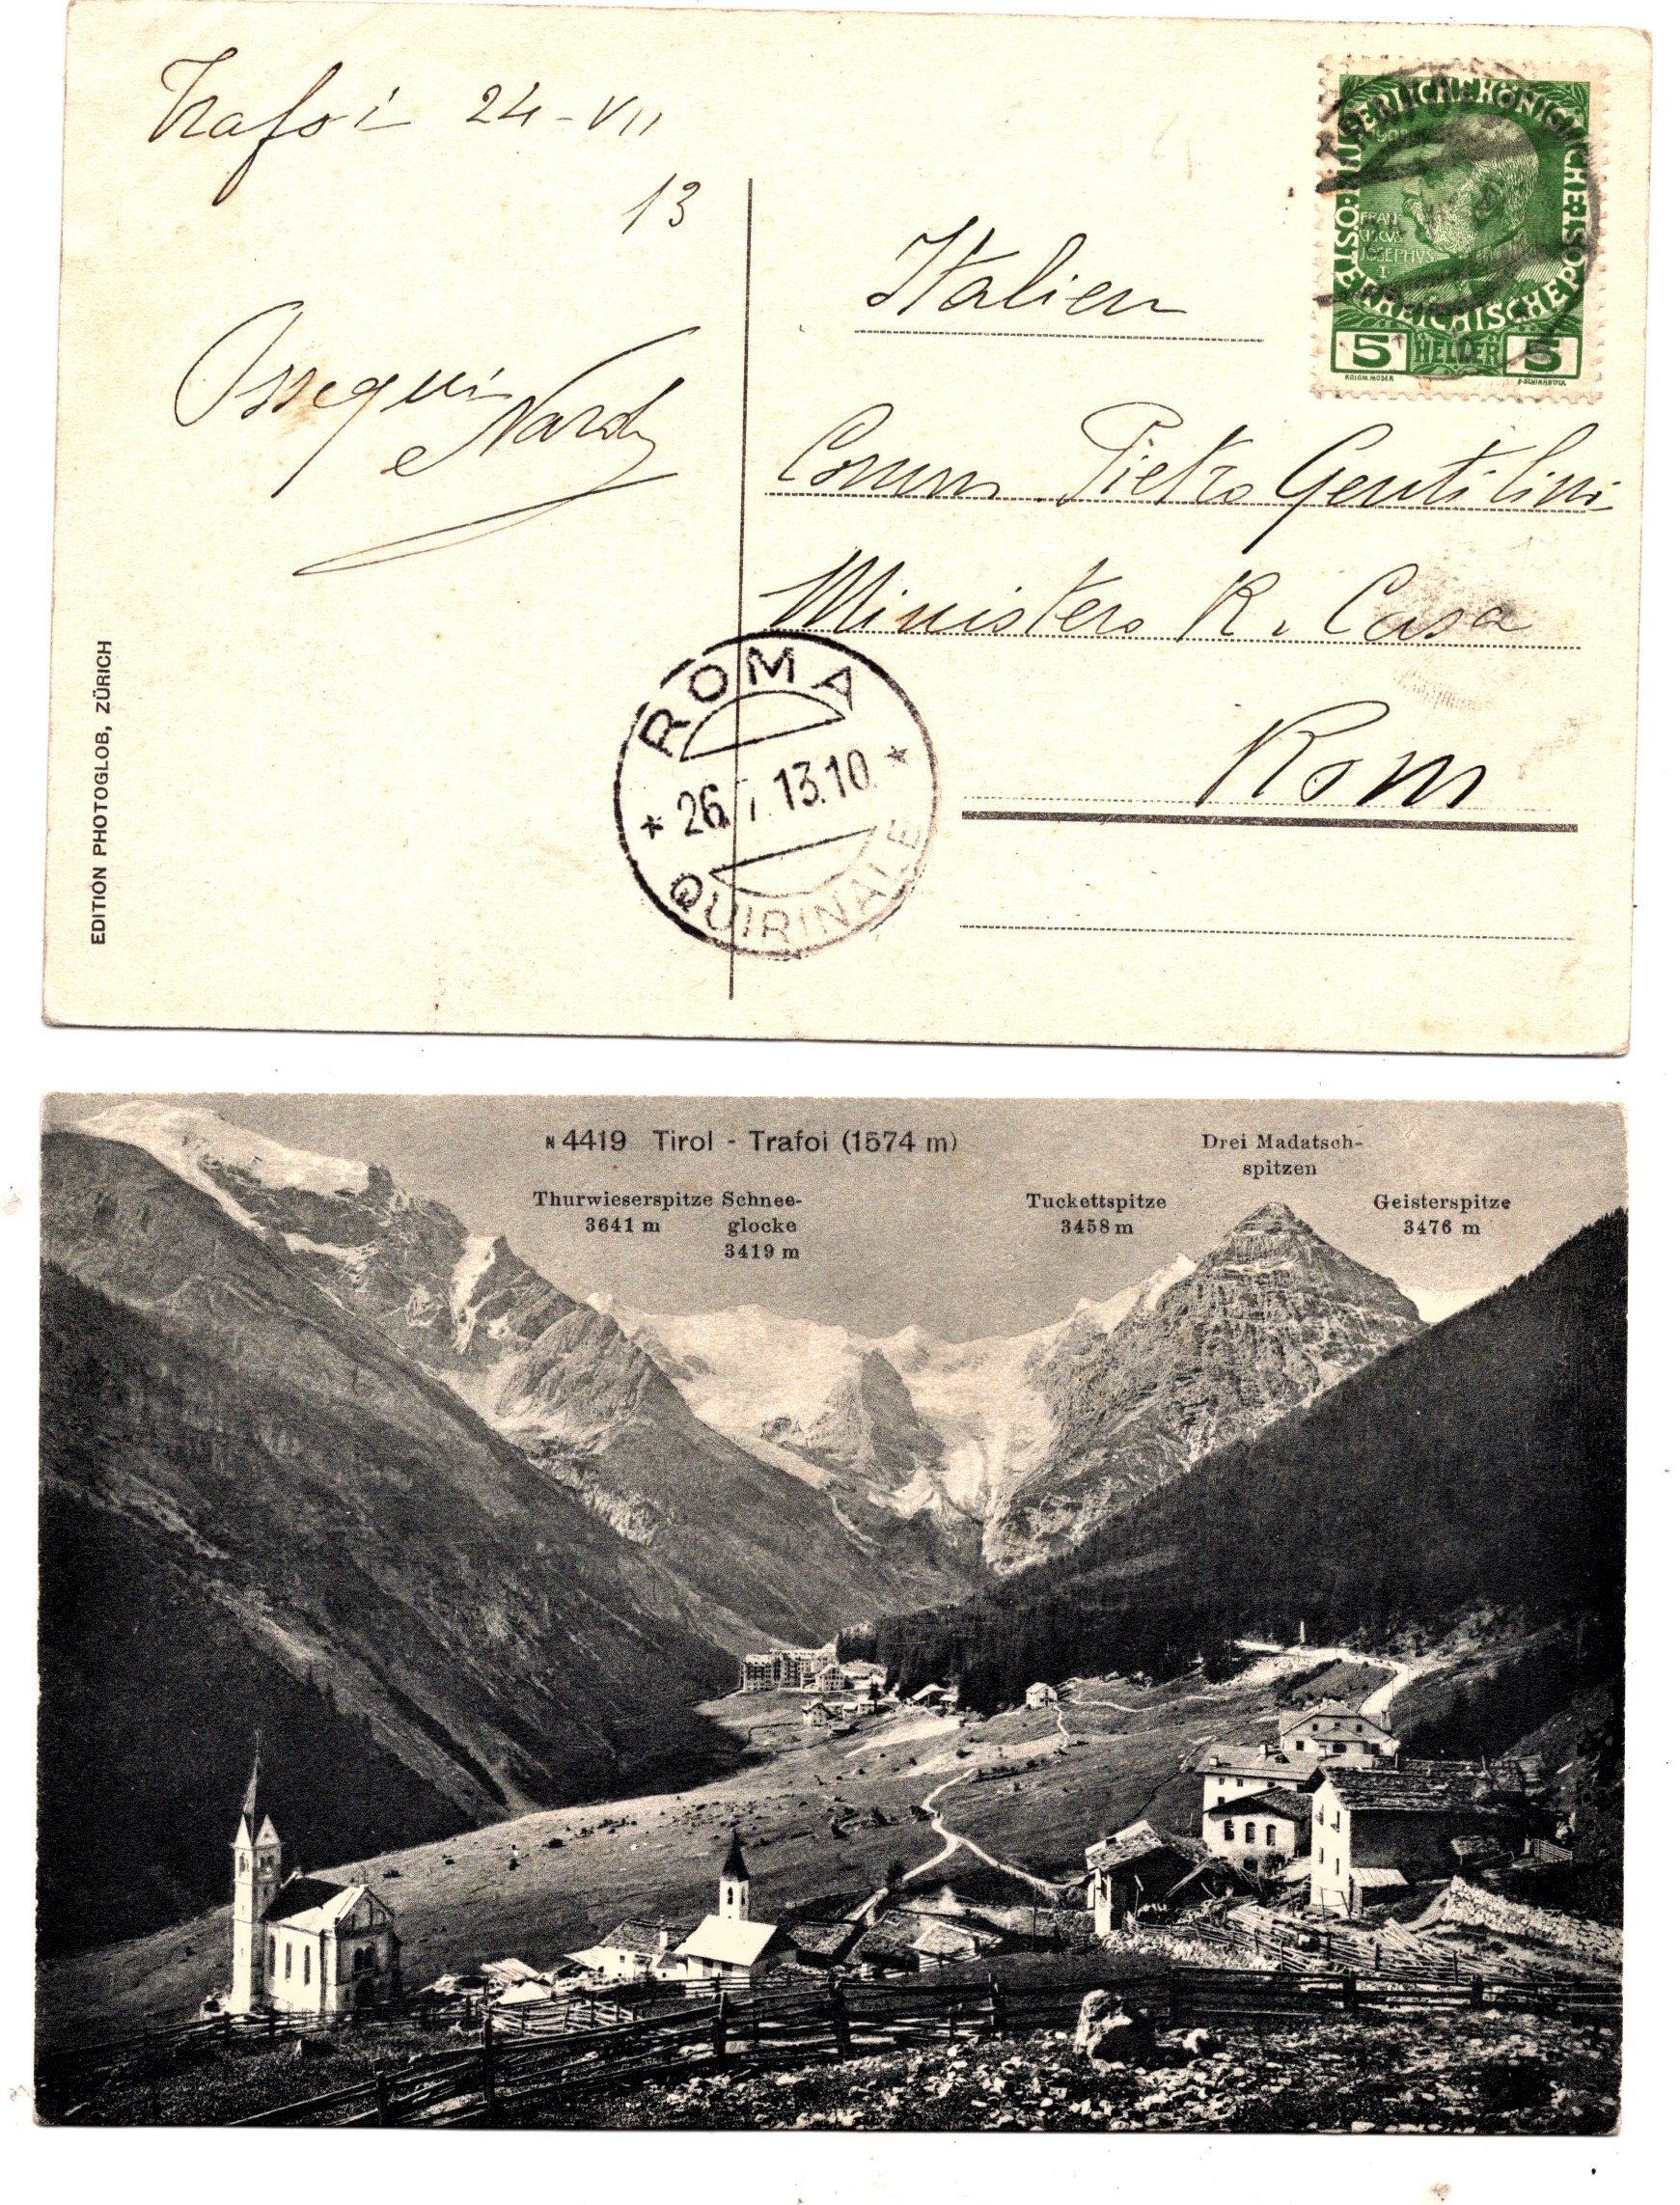 Trafoi 24-VII
13
Ossequi
Nardy
EDITION PHOTOGLOB, ZÜRICH
KAISERLICHE KÖNIGLICHE ÖSTERREICHISCHE POST
1908
FRAN-
CISCVS
JOSEPHVS
I
5 HELLER 5
KOLOM. MOSER
F. SCHIRNBÖCK
Italien
Comm. Pietro Gentilini
Ministero R. Casa
Rom
ROMA
* 26.7.13.10 *
QUIRINALE
N 4419 Tirol - Trafoi (1574 m)
Thurwieserspitze
3641 m
Schnee-
glocke
3419 m
Tuckettspitze
3458 m
Drei Madatsch-
spitzen
Geisterspitze
3476 m